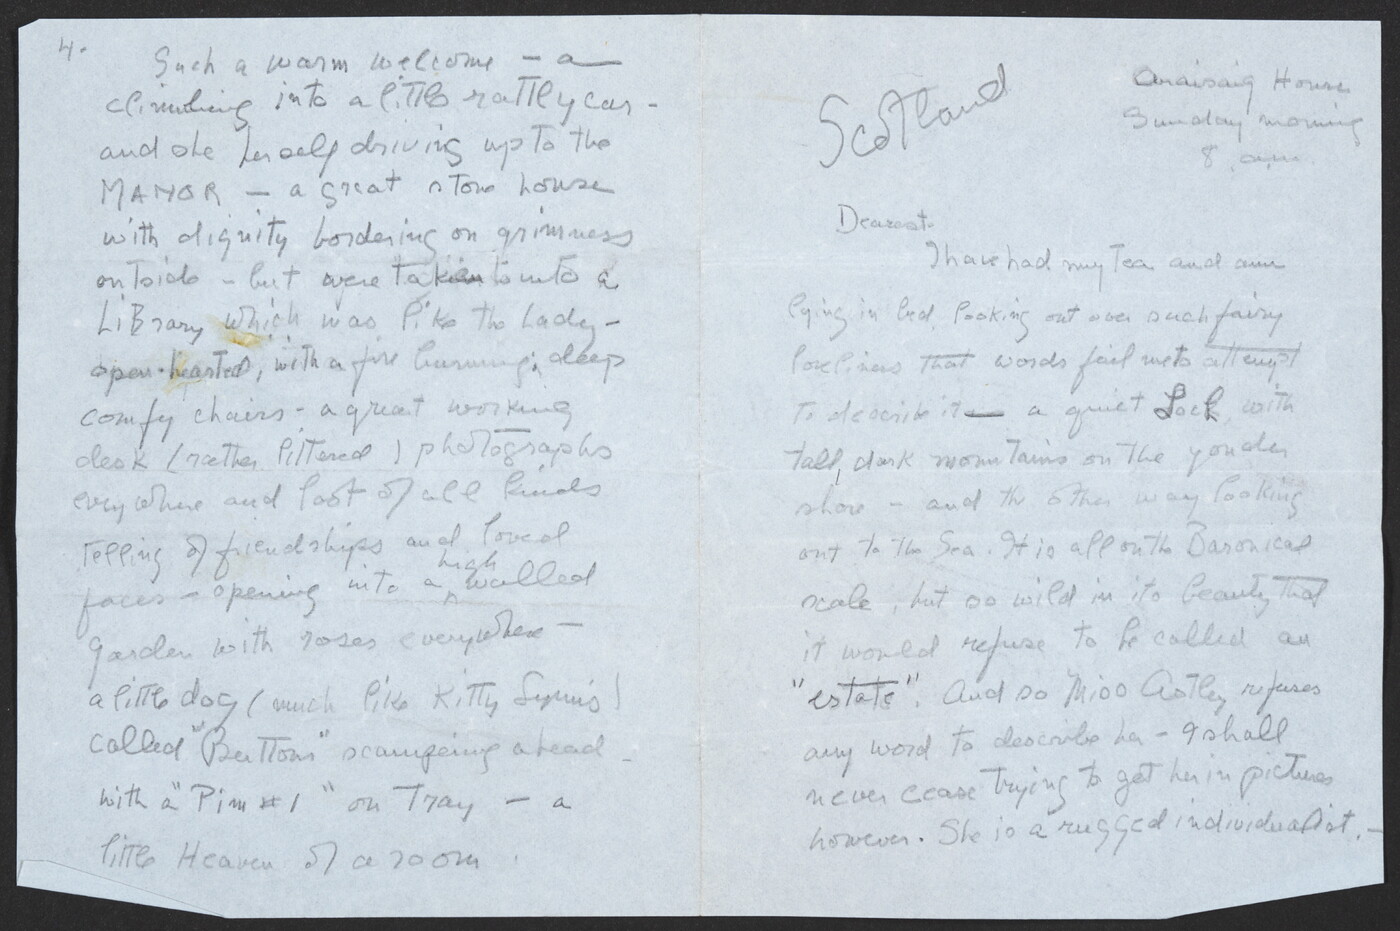 Scotland
Araisaig House
Sunday morning
8 a.m.
Dearest.
I have had my Tea and am
lying in bed looking out over such fairy
loveliness that words fail me to attempt
to describe it — a quiet Loch, with
tall, dark mountains on the yonder
shore - and the other way looking
out to the Sea. It is all on the Baronical
scale, but so wild in its beauty that
it would refuse to be called an
"estate". And so Miss Astley refuses
any word to describe her - I shall
never cease trying to get her in pictures
however. She is a rugged individualist. -
4.
Such a warm welcome — a
climbing into a little rattly car -
and she herself driving up to the
MANOR — a great stone house
with dignity bordering on grimness
outside - but were taken into a
LiBrary which was like the Lady -
open-hearted, with a fire burning; deep
comfy chairs - a great working
desk (rather littered) photographs
everywhere and loot of all kinds
telling of friendships and loved
faces - opening into a high walled
garden with roses everywhere —
a little dog (much like Kitty
called "Buttons" scampering ahead -
with a "Pim #1" on Tray — a
little Heaven of a room.